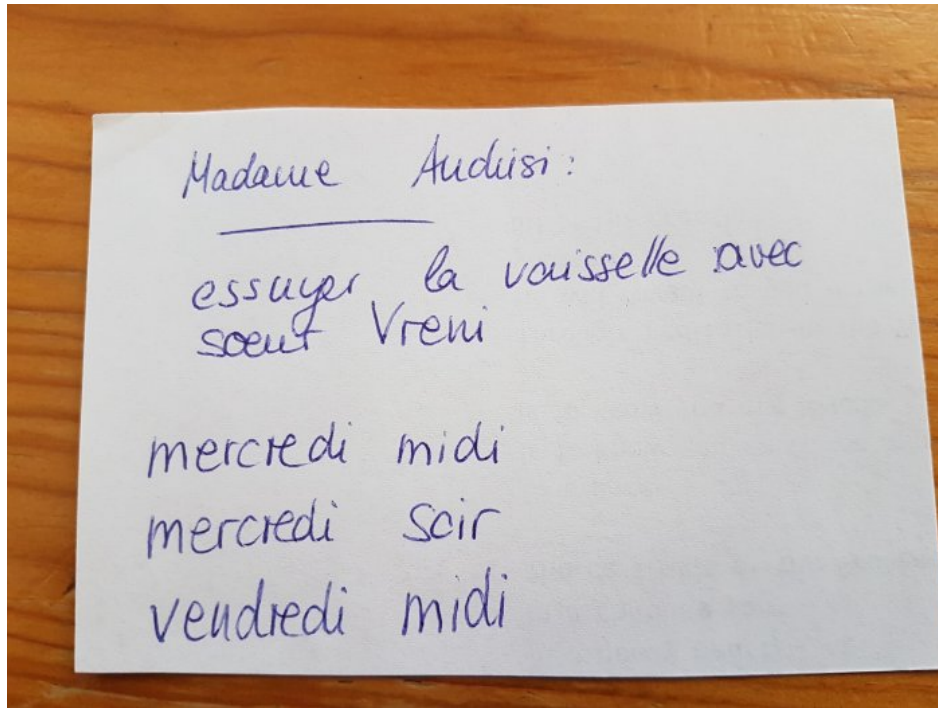 Madame
essuyer la vaisselle avec
soeur Vreni
mercredi midi
mercredi soir
vendredi midi